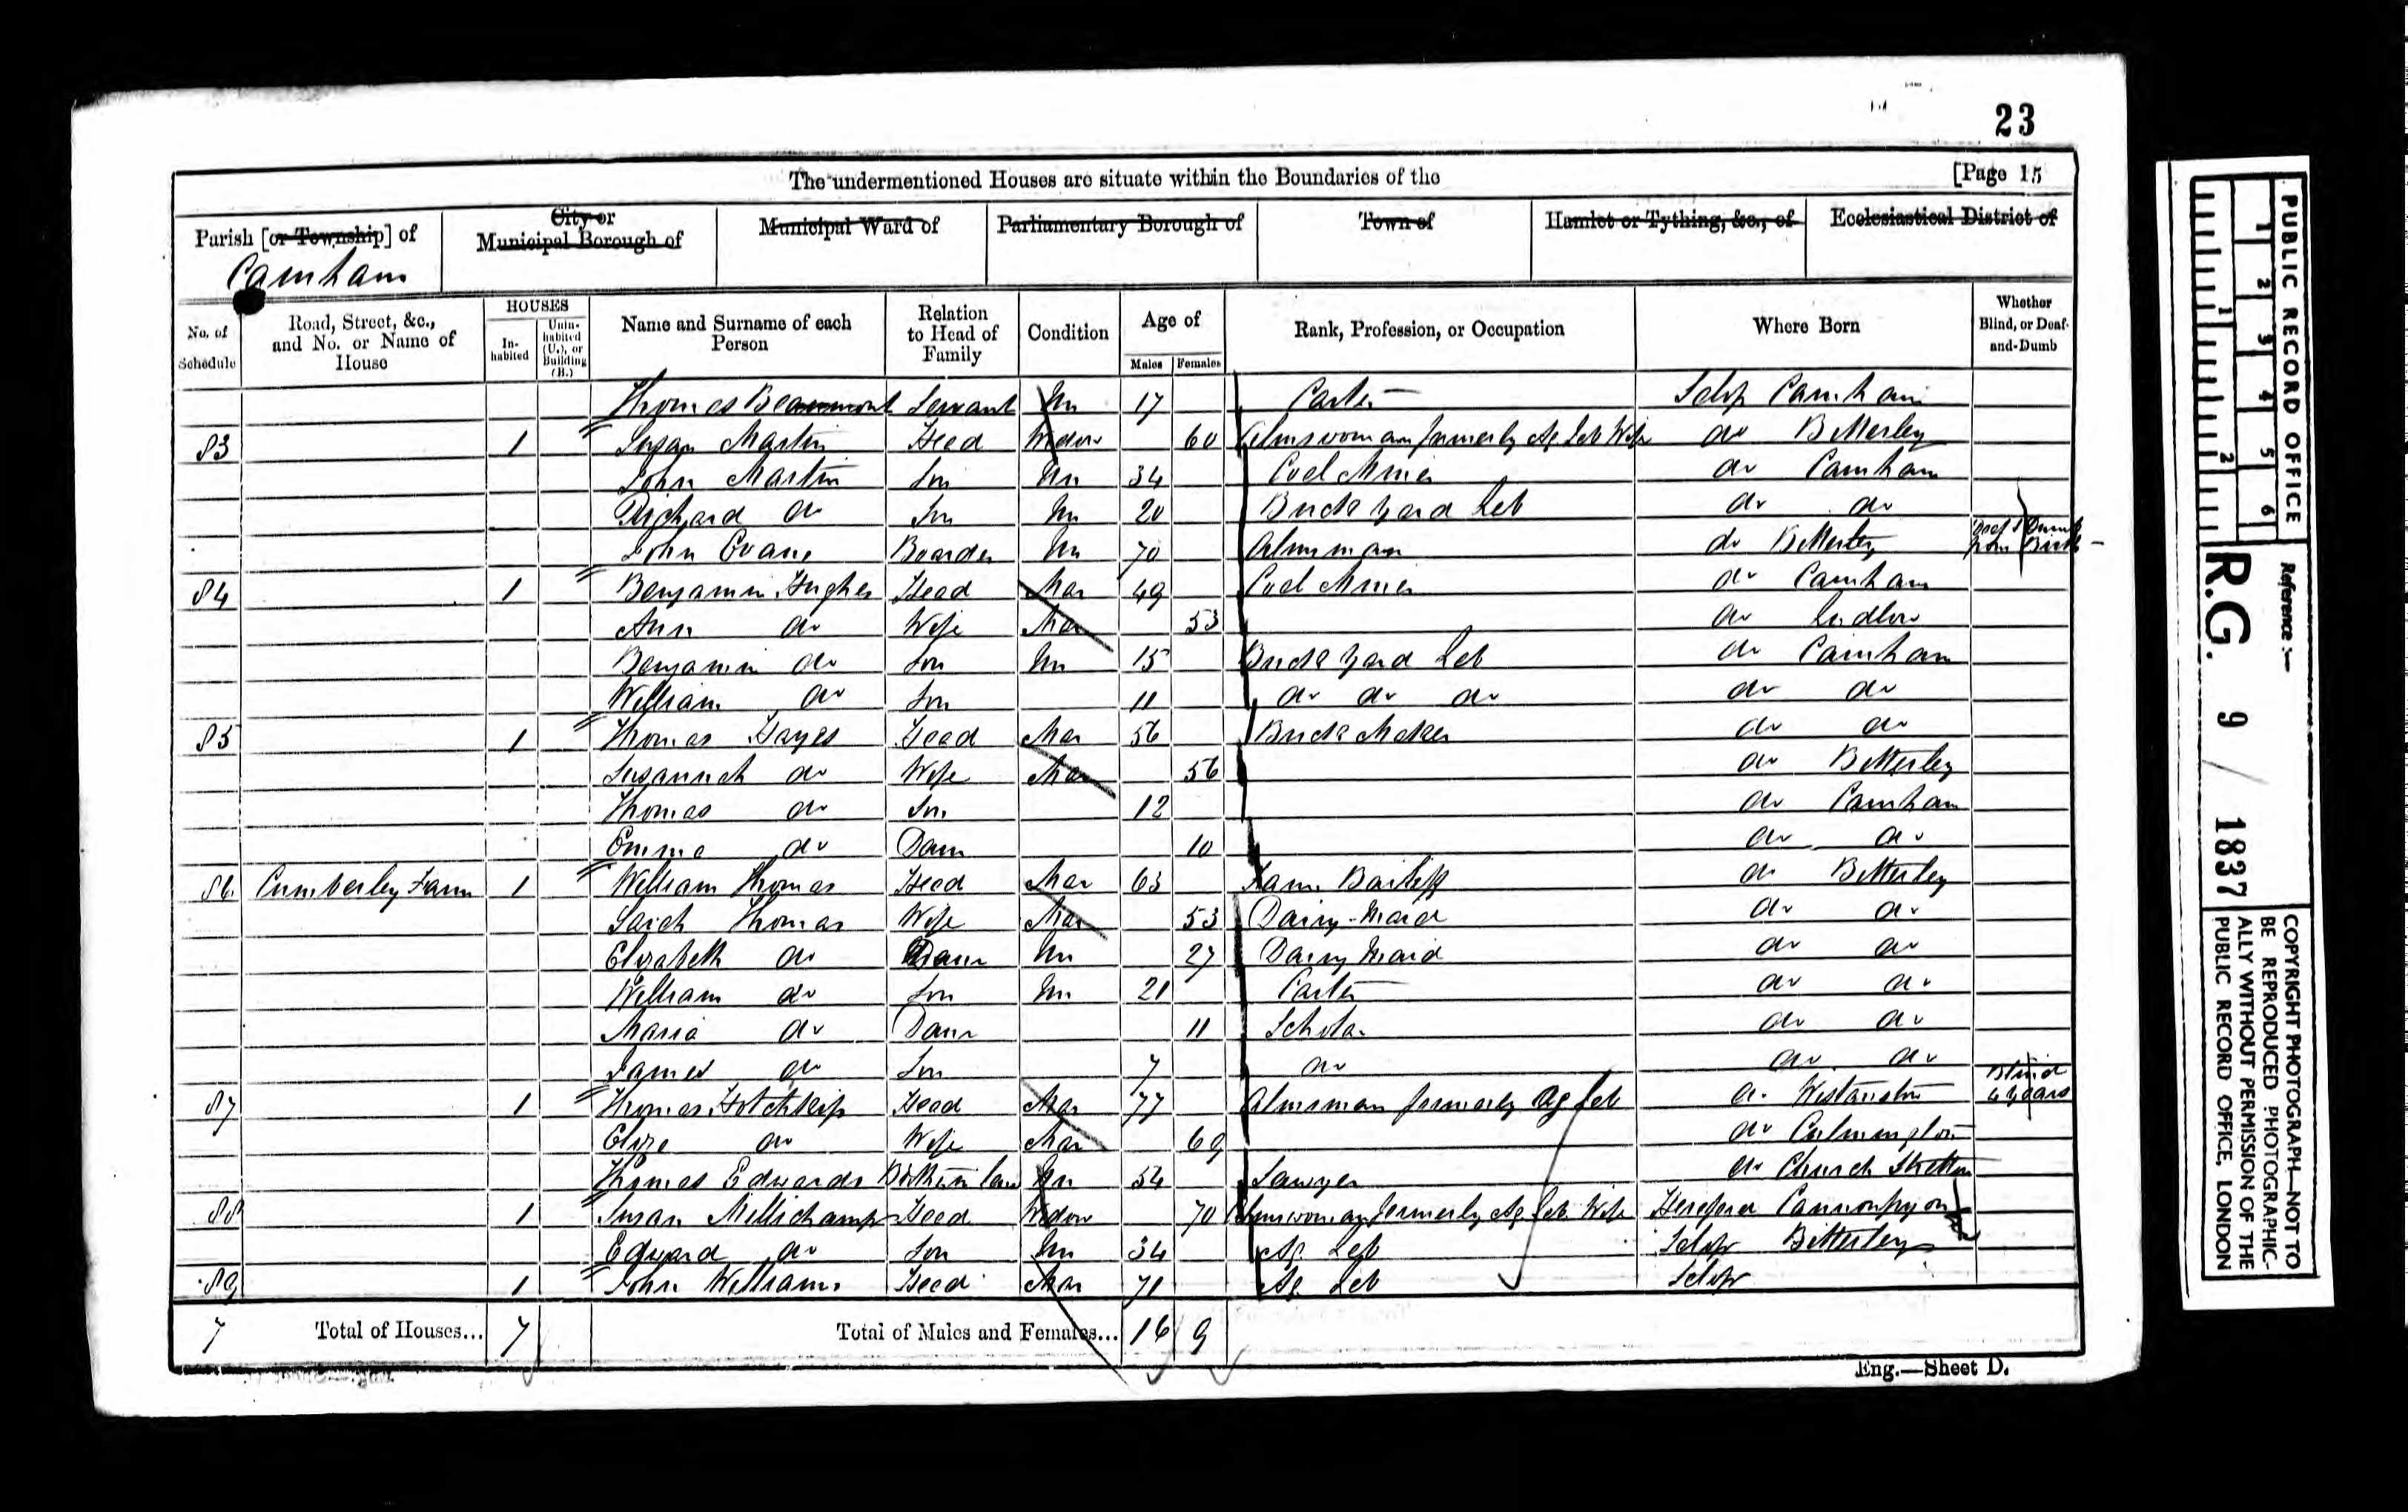 23
The undermentioned Houses are situate within the Boundaries of the [Page 15
Parish [or Township] of City or Municipal Borough of Municipal Ward of Parliamentary Borough of Town of Hamlet or Tything, &c., of Ecclesiastical District of
Cainham
No. of Schedule Road, Street, &c., and No. or Name of House HOUSES Inhabited Uninhabited (U.), or Building (B.) Name and Surname of each Person Relation to Head of Family Condition Age of Males Females Rank, Profession, or Occupation Where Born Whether Blind, or Deaf-and-Dumb
Thomas Beaumont Servant Un 17 Carter Salop Cainham
83 1 Susan Martin Head Widow 60 Almswoman formerly Ag Lab Wife do Bitterley
John Martin Son Un 34 Coal Miner do Cainham
Richard do Son Un 20 Brick Yard Lab do do
John Evans Boarder Un 70 Almsman do Bitterley Deaf & Dumb from Birth
84 1 Benjamin Hughes Head Mar 49 Coal Miner do Cainham
Ann do Wife Mar 53 do Ludlow
Benjamin do Son Un 15 Brick Yard Lab do Cainham
William do Son 11 do do do do do
85 1 Thomas Hayes Head Mar 56 Brick Maker do do
Susannah do Wife Mar 56 do Bitterley
Thomas do Son 12 do Cainham
Emma do Daur 10 do do
86 Cumberley Farm 1 William Thomas Head Mar 63 Farm Bailiff do Bitterley
Sarah Thomas Wife Mar 53 Dairy-Maid do do
Elizabeth do Daur Un 27 Dairy Maid do do
William do Son Un 21 Carter do do
Maria do Daur 11 Scholar do do
James do Son 7 do do do
87 1 Thomas Hotchkiss Head Mar 77 Almsman formerly Ag Lab do Wistanstow Blind 4 years
Eliza do Wife Mar 69 do Culmington
Thomas Edwards Brother in law Un 54 Sawyer do Church Stretton
88 1 Susan Millichamp Head Widow 70 Almswoman formerly Ag Lab Wife Hereford Cannonpyon
Edward do Son Un 34 Ag Lab Salop Bitterley
89 1 John Williams Head Mar 71 Ag Lab Salop
7 Total of Houses... 7 Total of Males and Females... 16 9
Eng.—Sheet D.
PUBLIC RECORD OFFICE
1 2 3 4 5 6
1 2
Reference :—
R.G. 9 / 1837
COPYRIGHT PHOTOGRAPH—NOT TO
BE REPRODUCED PHOTOGRAPHIC-
ALLY WITHOUT PERMISSION OF THE
PUBLIC RECORD OFFICE, LONDON